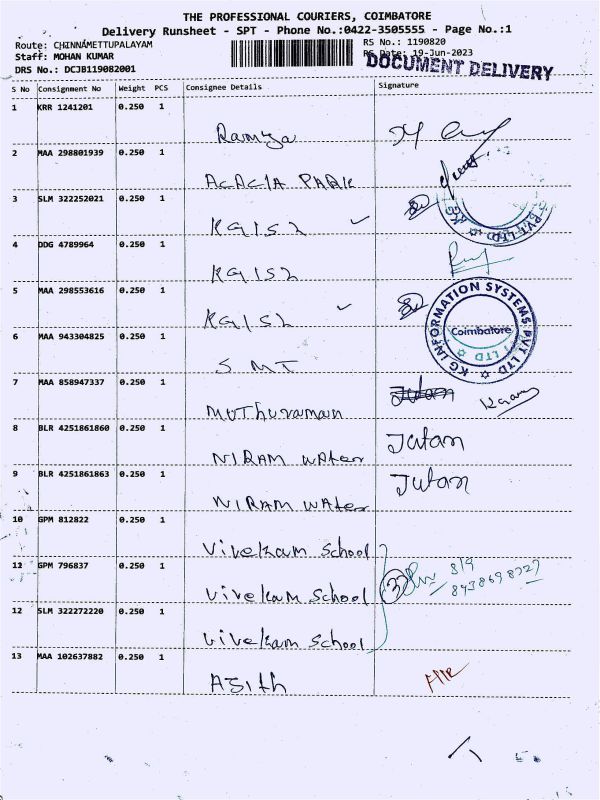 THE PROFESSIONAL COURIERS, COIMBATORE
Delivery Runsheet - SPT - Phone No.:0422-3505555 - Page No.:1
Route: CHINNAMETTUPALAYAM RS No.: 1190820
Staff: MOHAN KUMAR RS Date: 19-Jun-2023
DRS No.: DCJB119082001 DOCUMENT DELIVERY
S No Consignment No Weight PCS Consignee Details Signature
1 KRR 1241201 0.250 1
Ramya
2 MAA 298801939 0.250 1
ACACIA PARK
3 SLM 322252021 0.250 1
KGISL
KG PVT LTD
4 DDG 4789964 0.250 1
KGISL
5 MAA 298553616 0.250 1
KGISL
KG INFORMATION SYSTEMS PVT LTD
Coimbatore
6 MAA 943304825 0.250 1
SMT
7 MAA 858947337 0.250 1
Muthuraman
8 BLR 4251861860 0.250 1
NIRAM WAter Jutan
9 BLR 4251861863 0.250 1
NIRAM WAter Jutan
10 GPM 812822 0.250 1
Vivekam School
11 GPM 796837 0.250 1
Vivekam School 3
12 SLM 322272220 0.250 1
Vivekam School
13 MAA 102637882 0.250 1
Ajith